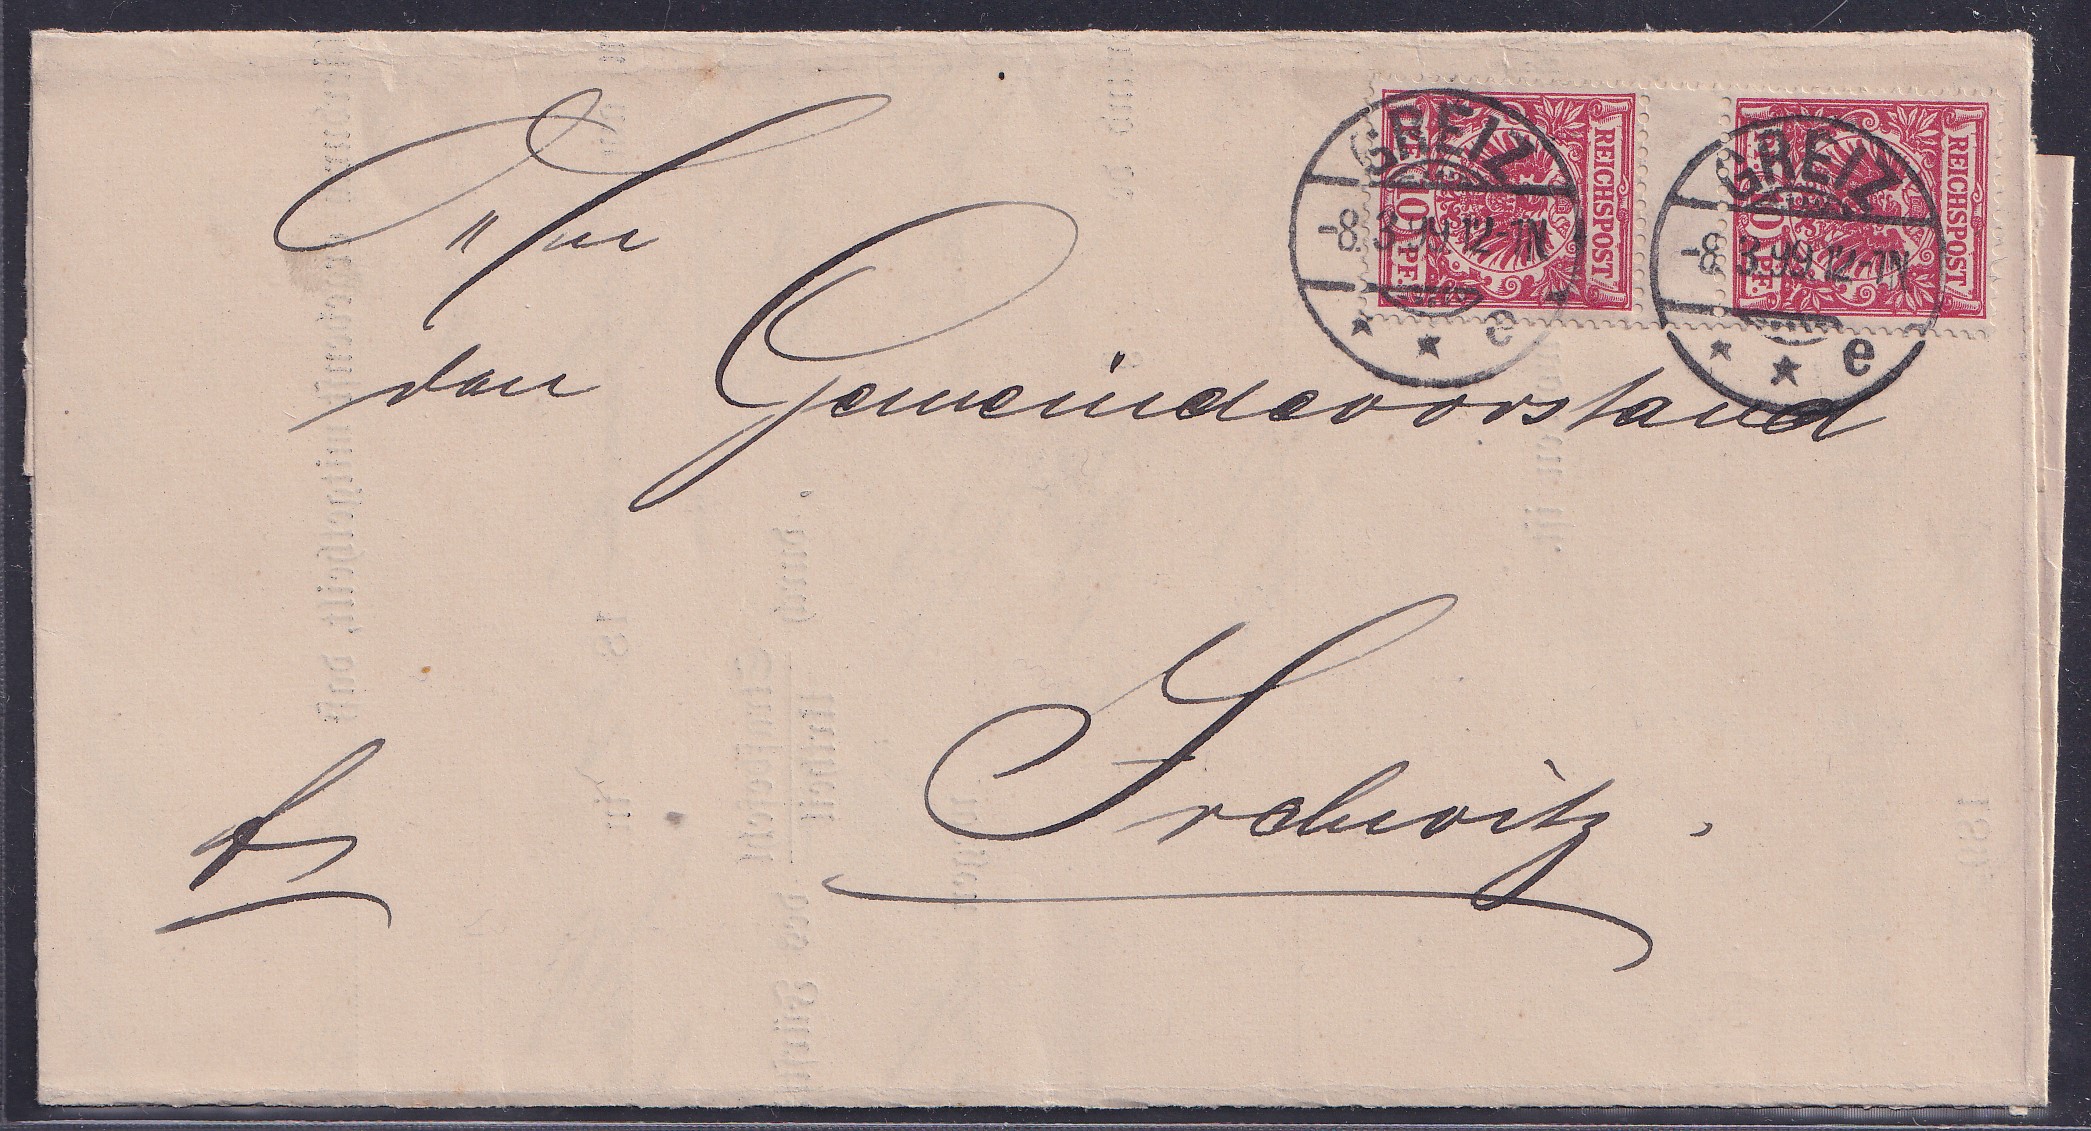 GREIZ
-8.3.99.12-1N
e
REICHSPOST
10 PF.
GREIZ
-8.3.99.12-1N
e
REICHSPOST
10 PF.
An
den Gemeindevorstand
Irchwitz.